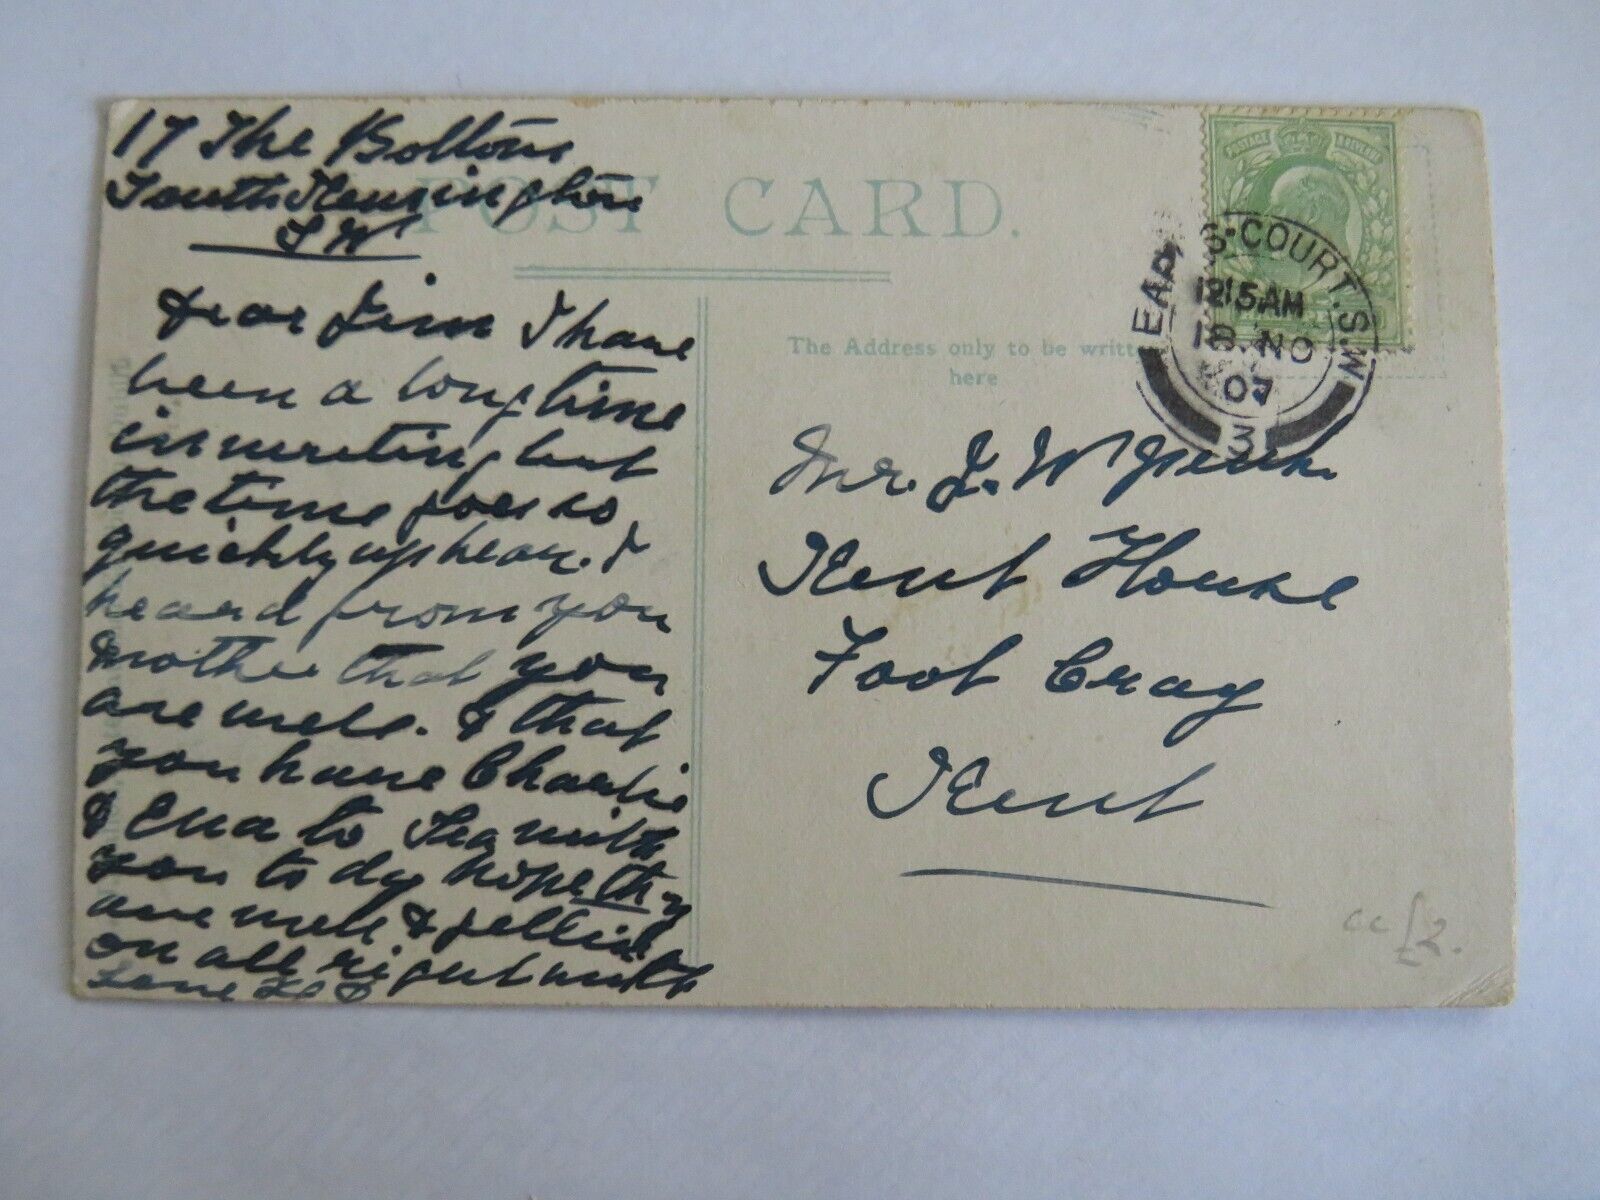 17 The Boltons
South Kensington
S W
POST CARD.
Dear Jim I have
been a long time
in writing but
the time goes so
quickly up hear. I
heard from you
mother that you
are well. & that
you have Charlie
& Ena to Tea with
you to dy hope thy
are well & gelling
on all right with
Love
The Address only to be writt
here
Mr. J. W
Kent House
Foot Cray
Kent
POSTAGE & REVENUE
EARL'S COURT. S.W.
12 15 AM
18 NO
07
3
cc £2.